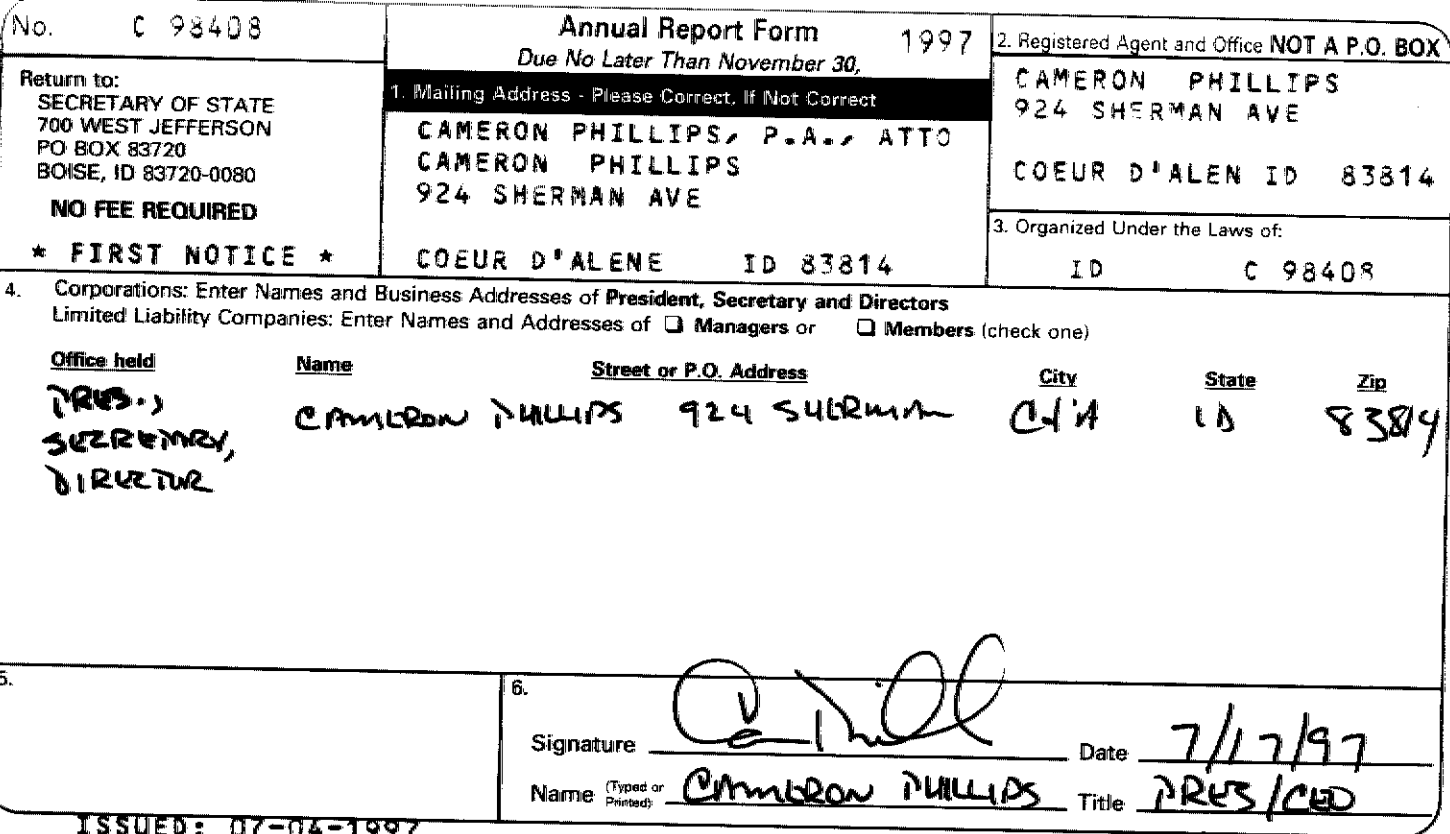 No. C 98408
Annual Report Form 1997
Due No Later Than November 30,
Return to:
SECRETARY OF STATE
700 WEST JEFFERSON
PO BOX 83720
BOISE, ID 83720-0080
NO FEE REQUIRED
* FIRST NOTICE *
1. Mailing Address - Please Correct, If Not Correct
CAMERON PHILLIPS, P.A., ATTO
CAMERON PHILLIPS
924 SHERMAN AVE
COEUR D'ALENE ID 83814
2. Registered Agent and Office NOT A P.O. BOX
CAMERON PHILLIPS
924 SHERMAN AVE
COEUR D'ALEN ID 83814
3. Organized Under the Laws of:
ID C 98408
4. Corporations: Enter Names and Business Addresses of President, Secretary and Directors
Limited Liability Companies: Enter Names and Addresses of ❑ Managers or ❑ Members (check one)
Office held Name Street or P.O. Address City State Zip
PRES., CAMERON PHILLIPS 924 SHERMAN Cd'A ID 83814
SECRETARY,
DIRECTOR
5.
6.
Signature Date 7/17/97
Name (Typed or Printed) CAMERON PHILLIPS Title PRES/CEO
ISSUED: 07-04-1997